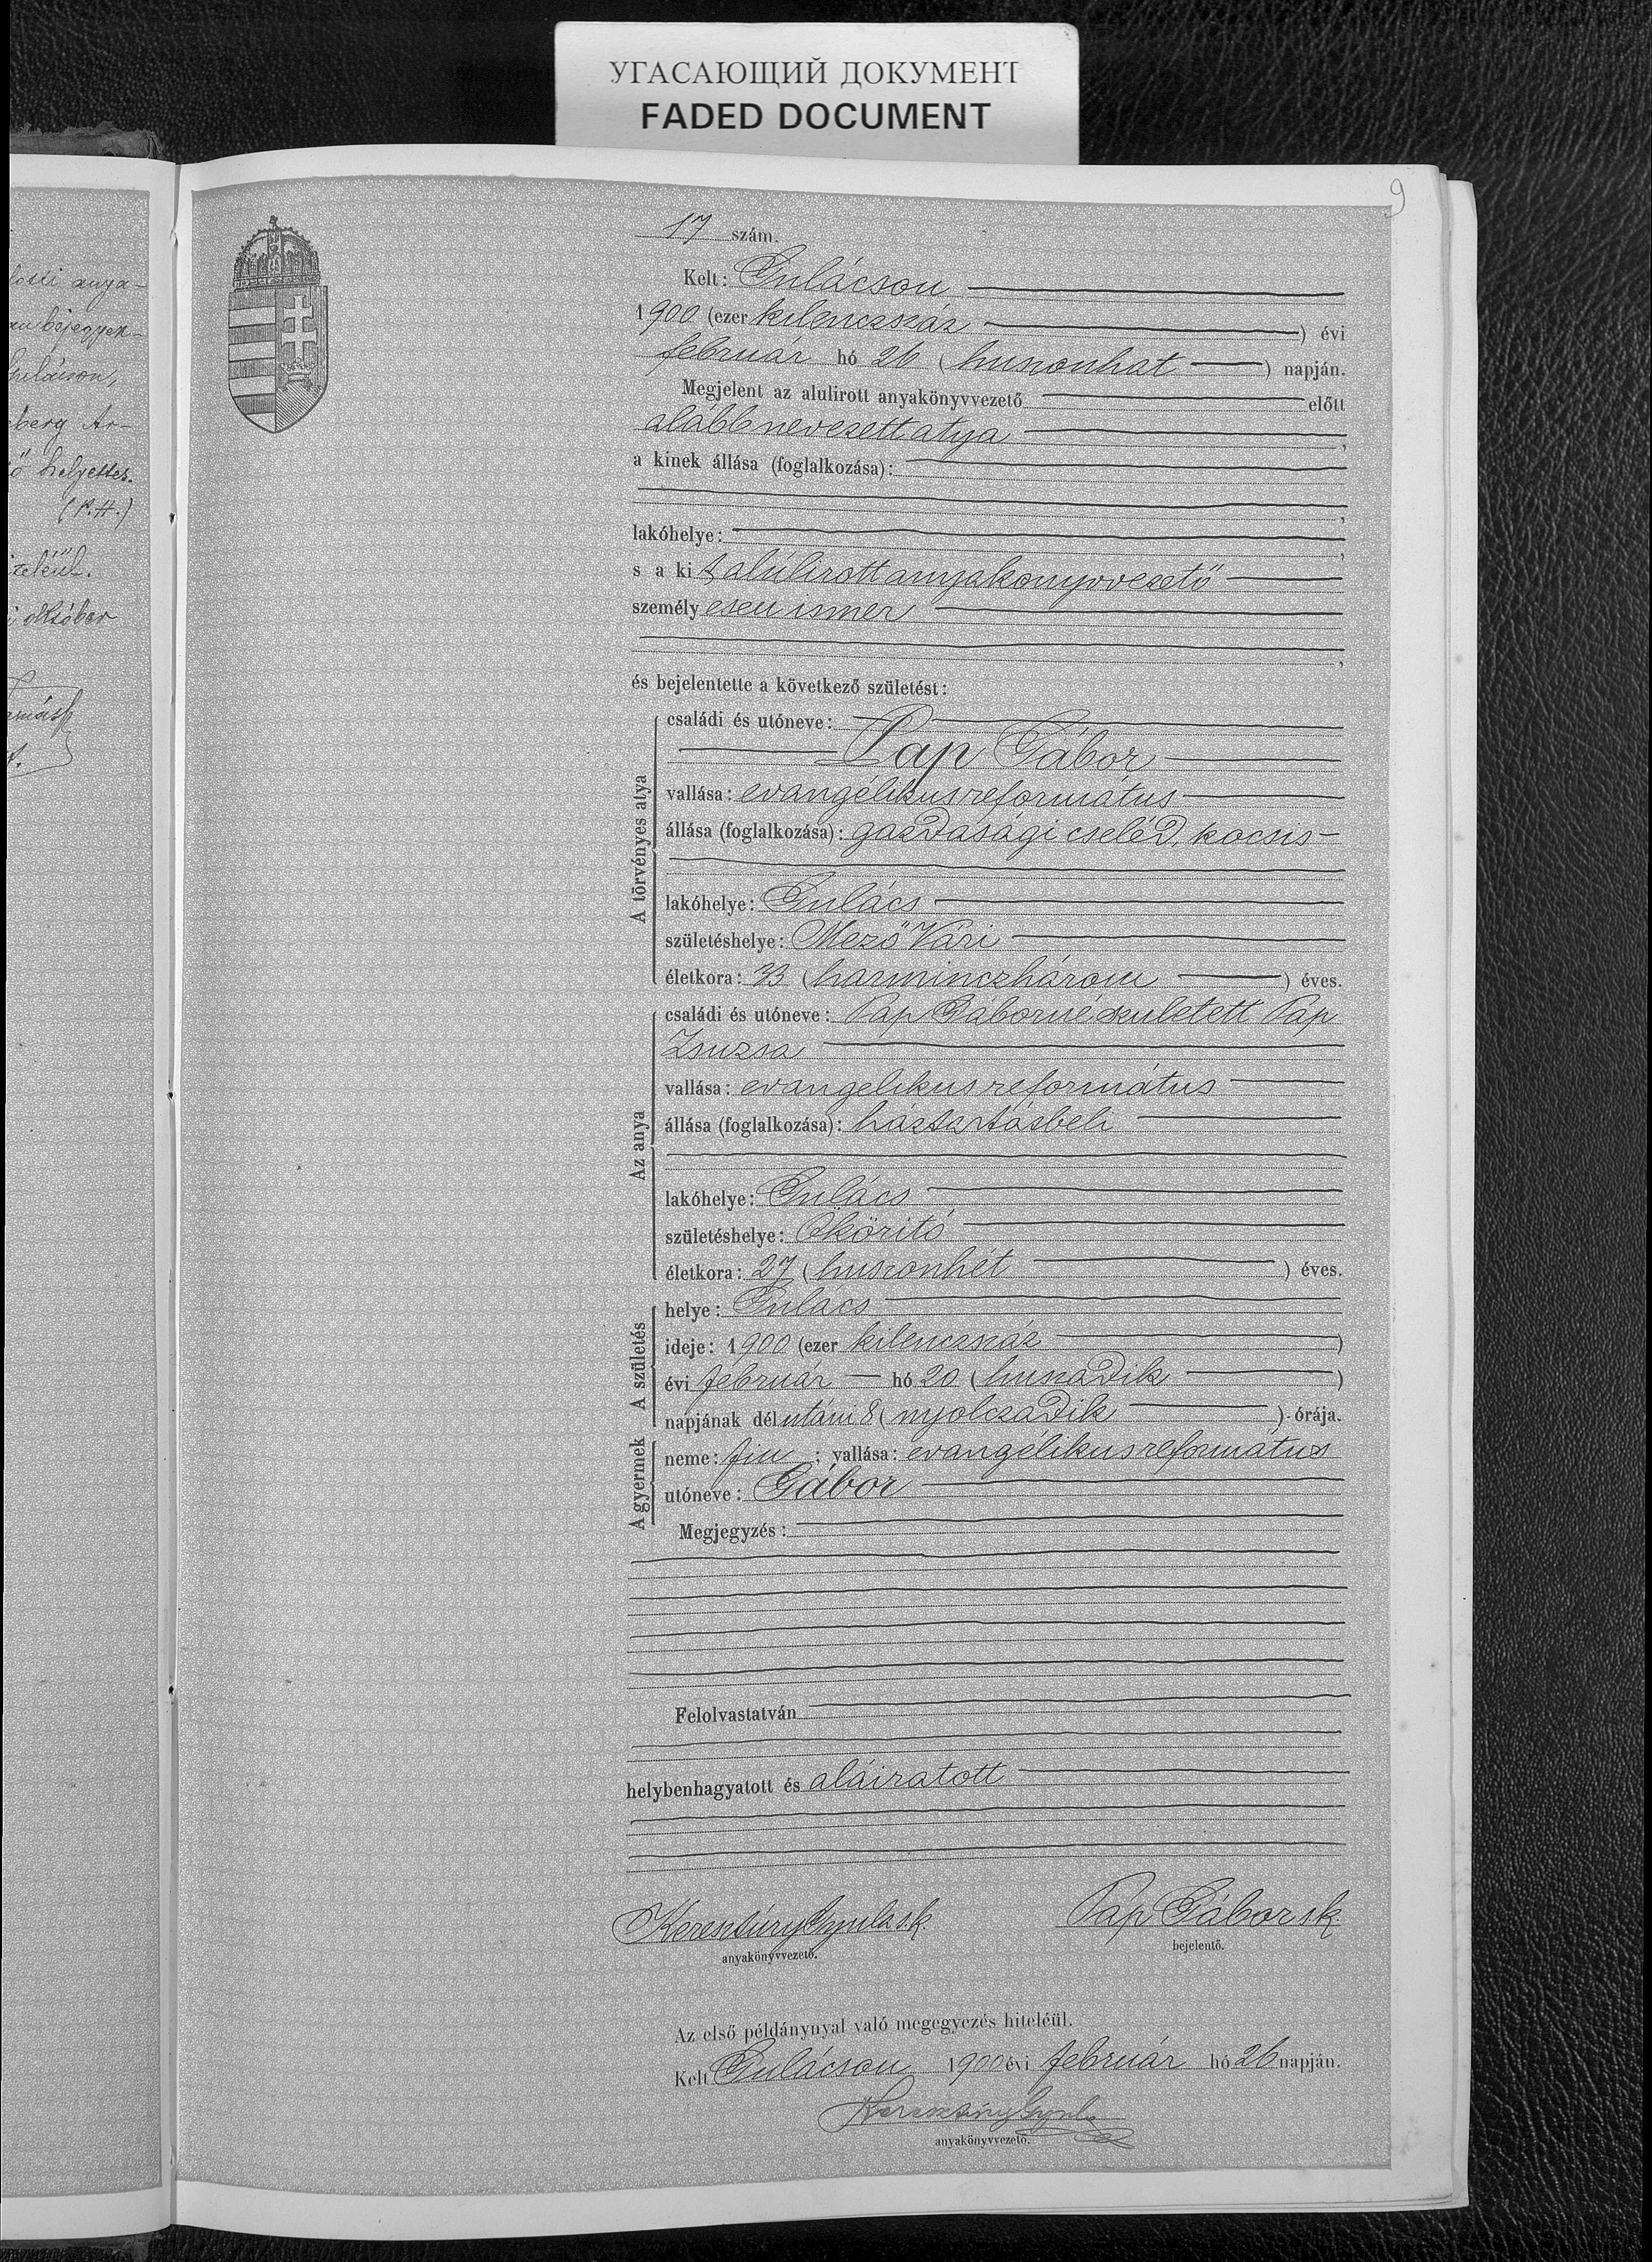 УГАСАЮЩИЙ ДОКУМЕНТ
FADED DOCUMENT
9
anya-
bejegyen-
berg Ar-
helyettes.
(P.H.)
október
17 szám.
Kelt: Gulácson
1900 (ezer kilenczszáz ) évi
február hó 26 (huszonhat ) napján.
Megjelent az alulirott anyakönyvvezető előtt
alább nevezett atya ,
a kinek állása (foglalkozása):
,
lakóhelye: ,
s a kit alúlirott anyakönyvvezető
személyesen ismer
,
és bejelentette a következő születést:
A törvényes atya
családi és utóneve:
Pap Gábor
vallása: evangélikus református
állása (foglalkozása): gazdasági cseléd, kocsis
lakóhelye: Gulács
születéshelye: Mező Vári
életkora: 33 (harminczhárom ) éves.
Az anya
családi és utóneve: Pap Gáborné született Pap
Zsuzsa
vallása: evangelikus református
állása (foglalkozása): háztartásbeli
lakóhelye: Gulács
születéshelye: Ököritó
életkora: 27 (huszonhét ) éves.
A születés
helye: Gulacs
ideje: 1900 (ezer kilenczszáz )
évi február — hó 20 (huszadik )
napjának délutáni 8 (nyolczadik ) órája.
A gyermek
neme: fiu ; vallása: evangélikus református
utóneve: Gábor
Megjegyzés:
Felolvastatván
helybenhagyatott és aláiratott
Keresztúry Gyula s.k. Pap Gábor s.k.
anyakönyvvezető. bejelentő.
Az első példánynyal való megegyezés hiteléül.
Kelt Gulácson 1900 évi február hó 26 napján.
Keresztúry Gyula
anyakönyvvezető.